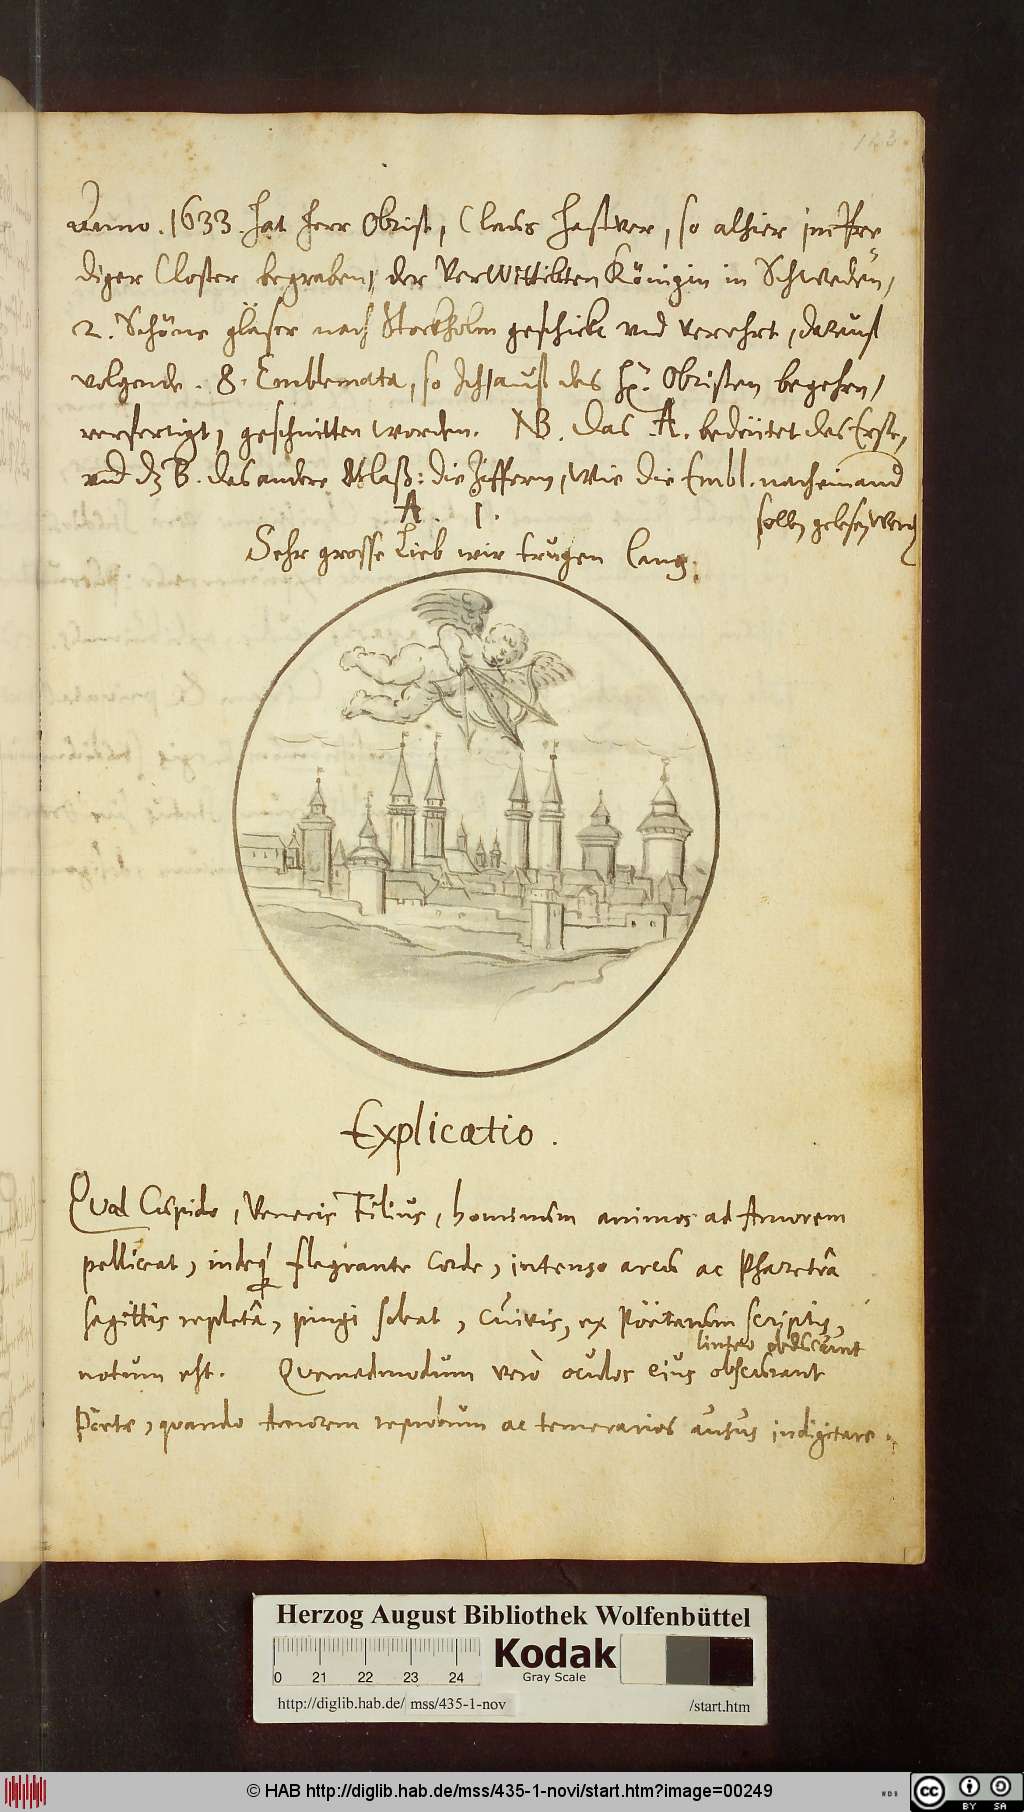 123
Anno. 1633. hat Herr Obrist, Claus Hastver, so alhier im Pre
diger Closter begraben, der VerWittibten Königin in Schweden,
2. Schöne gläser nach Stockholm geschickt vnd verehrt, darauf
volgende. 8. Emblemata, so Ich, auß des H. Obristen begehrn,
verfertigt, geschnitten worden. NB. das .A. bedeütet das Erste,
vnd dz B. das andere Glaß: die Ziffern, wie die Embl. nacheinand
sollen gelesen werden
A. 1.
Sehr grosse Lieb wir trugen lang.
Explicatio.
Qual Cupido, Veneris Filius, hominum animos ad Amorem
pelliceat, indeq́ flagrante corde, intenso arcu ac Pharetrâ
sagittis repletâ, pingi soleat, cuivis, ex Pöetarum scriptis,
linteo obducunt
notum est. Quemadmodum verò oculos eius obscurant
Pöetæ, quando Amorem reprobum ac temerarios ausus indigitare
Herzog August Bibliothek Wolfenbüttel
0 21 22 23 24
Kodak
Gray Scale
http://diglib.hab.de/ mss/435-1-nov /start.htm
© HAB http://diglib.hab.de/mss/435-1-novi/start.htm?image=00249
WDB
cc BY SA